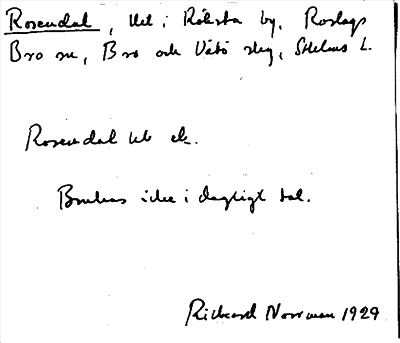 Rosendal, Uel i Råksta by, Roslags
Bro sn, Bro och Vätö skg, Sthlms L.
Rosendal
Brukas icke i dagligt tal.
Richard Norrman 1929